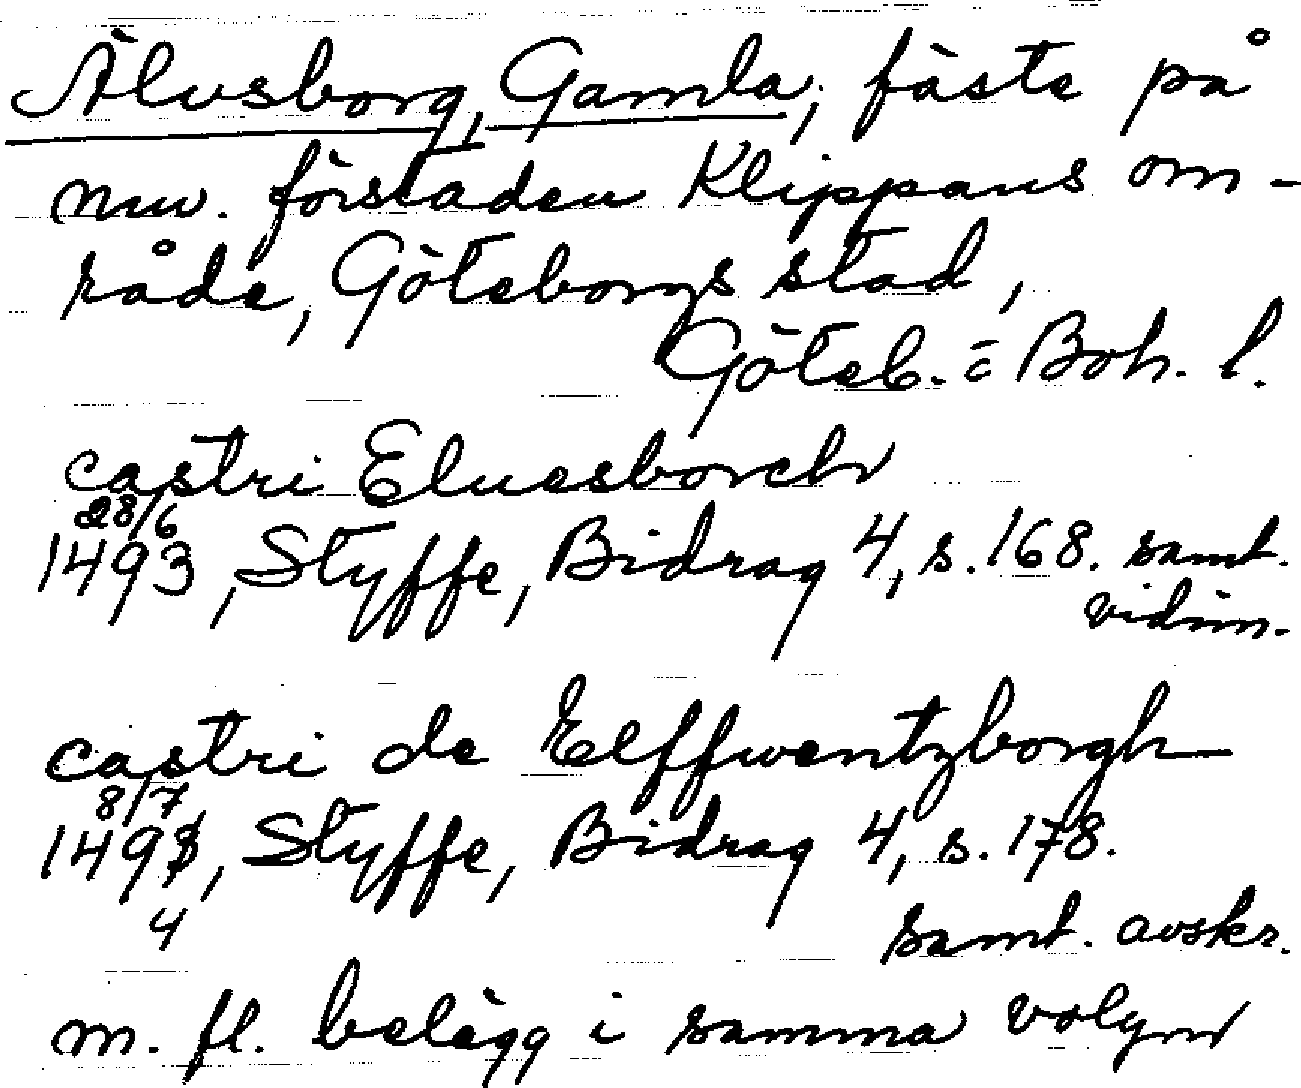 Älvsborg, Gamla, fäste på
nuv. förstaden Klippans om-
råde, Göteborgs stad,
Göteb. o Boh. l.
castri Eluesborch
28/6
1493, Styffe, Bidrag 4, s. 168. samt.
vidim.
castri de Elffwentzborgh
8/7
1493, Styffe, Bidrag 4, s. 178.
4
samt. avskr.
m. fl. belägg i samma volym